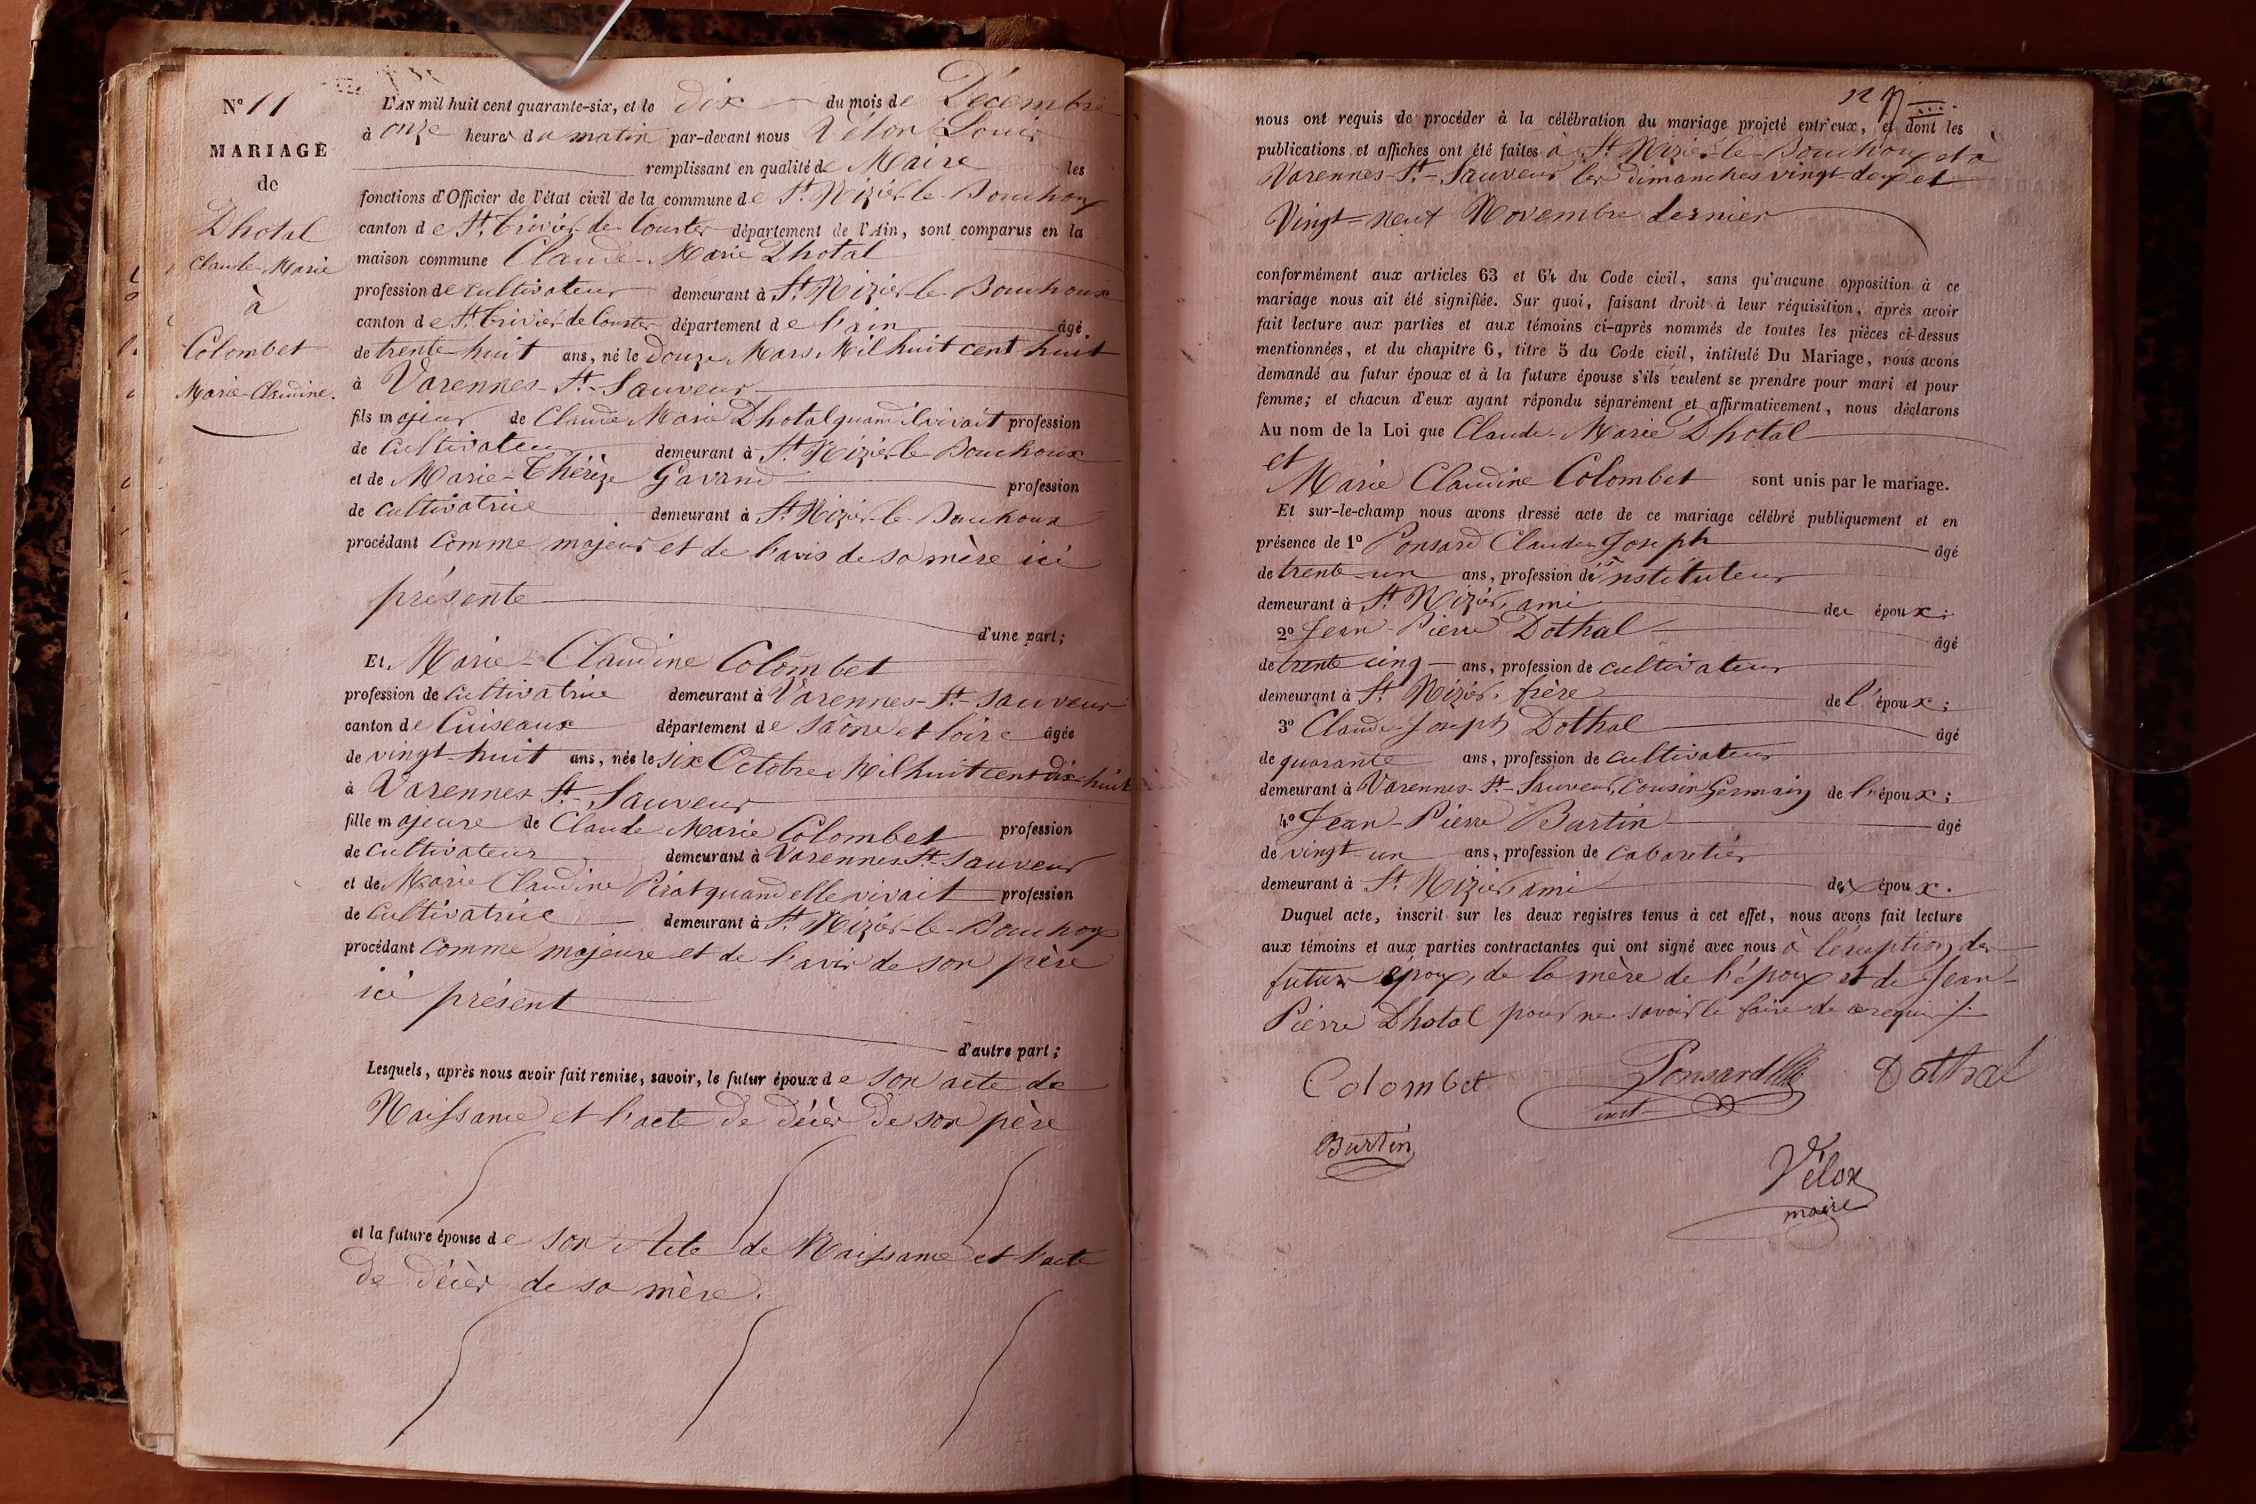 N° 11
MARIAGE
de
Dhotal
Claude-Marie
à
Colombet
Marie-Claudine.
L'AN mil huit cent quarante-six, et le dix du mois de Décembre
à onze heures du matin par-devant nous Vélon Louis
remplissant en qualité de Maire les
fonctions d'Officier de l'état civil de la commune de St. Nizier-le-Bouchoux
canton de St. Trivier-de-Courtes département de l'Ain, sont comparus en la
maison commune Claude-Marie Dhotal
profession de cultivateur demeurant à St. Nizier-le-Bouchoux
canton de St. Trivier de Courtes département de l'ain âgé
de trente-huit ans, né le douze Mars Mil huit cent huit
à Varennes-St-Sauveur
fils majeur de Claude Marie Dhotal quand il vivait profession
de cultivateur demeurant à St. Nizier-le-Bouchoux
et de Marie-Thérèze Gavand profession
de cultivatrice demeurant à St. Nizier-le-Bouchoux
procédant comme majeur et de l'avis de sa mère ici
présente
d'une part;
Et Marie-Claudine Colombet
profession de cultivatrice demeurant à Varennes-St-Sauveur
canton de Cuiseaux département de saône et loire âgée
de vingt-huit ans, née le six Octobre Mil huit cent dix-huit
à Varennes St-Sauveur
fille majeure de Claude Marie Colombet profession
de cultivateur demeurant à Varennes St. Sauveur
et de Marie Claudine quand elle vivait profession
de cultivatrice demeurant à St. Nizier-le-Bouchoux
procédant comme majeure et de l'avis de son père
ici présent
d'autre part;
Lesquels, après nous avoir fait remise, savoir, le futur époux de son acte de
Naissance et l'acte de décès de son père
et la future épouse de son Acte de Naissance et l'acte
de décès de sa mère.
12
nous ont requis de procéder à la célébration du mariage projeté entr'eux, et dont les
publications et affiches ont été faites à St. Nizier-le-Bouchoux et à
Varennes-St-Sauveur les dimanches vingt-deux et
Vingt-neuf Novembre dernier
conformément aux articles 63 et 64 du Code civil, sans qu'aucune opposition à ce
mariage nous ait été signifiée. Sur quoi, faisant droit à leur réquisition, après avoir
fait lecture aux parties et aux témoins ci-après nommés de toutes les pièces ci-dessus
mentionnées, et du chapitre 6, titre 5 du Code civil, intitulé Du Mariage, nous avons
demandé au futur époux et à la future épouse s'ils veulent se prendre pour mari et pour
femme; et chacun d'eux ayant répondu séparément et affirmativement, nous déclarons
Au nom de la Loi que Claude-Marie Dhotal
et
Marie Claudine Colombet sont unis par le mariage.
Et sur-le-champ nous avons dressé acte de ce mariage célébré publiquement et en
présence de 1° Ponsard Claude-Joseph âgé
de trente-un ans, profession de instituteur
demeurant à St. Nizier, ami des époux;
2° Jean-Pierre Dothal âgé
de trente cinq ans, profession de cultivateur
demeurant à St. Nizier, frère de l'époux;
3° Claude-Joseph Dothal âgé
de quarante ans, profession de cultivateur
demeurant à Varennes-St-Sauveur, Cousin Germain de l'époux;
4° Jean-Pierre Burtin âgé
de vingt-un ans, profession de cabaretier
demeurant à St. Nizier, ami des époux.
Duquel acte, inscrit sur les deux registres tenus à cet effet, nous avons fait lecture
aux témoins et aux parties contractantes qui ont signé avec nous à l'éxception des
futurs époux, de la mère de l'époux et de Jean-
Pierre Dhotal pour ne savoir le faire de ce requis
Colombet Ponsard Dothal
inst
Burtin
Vélon
maire